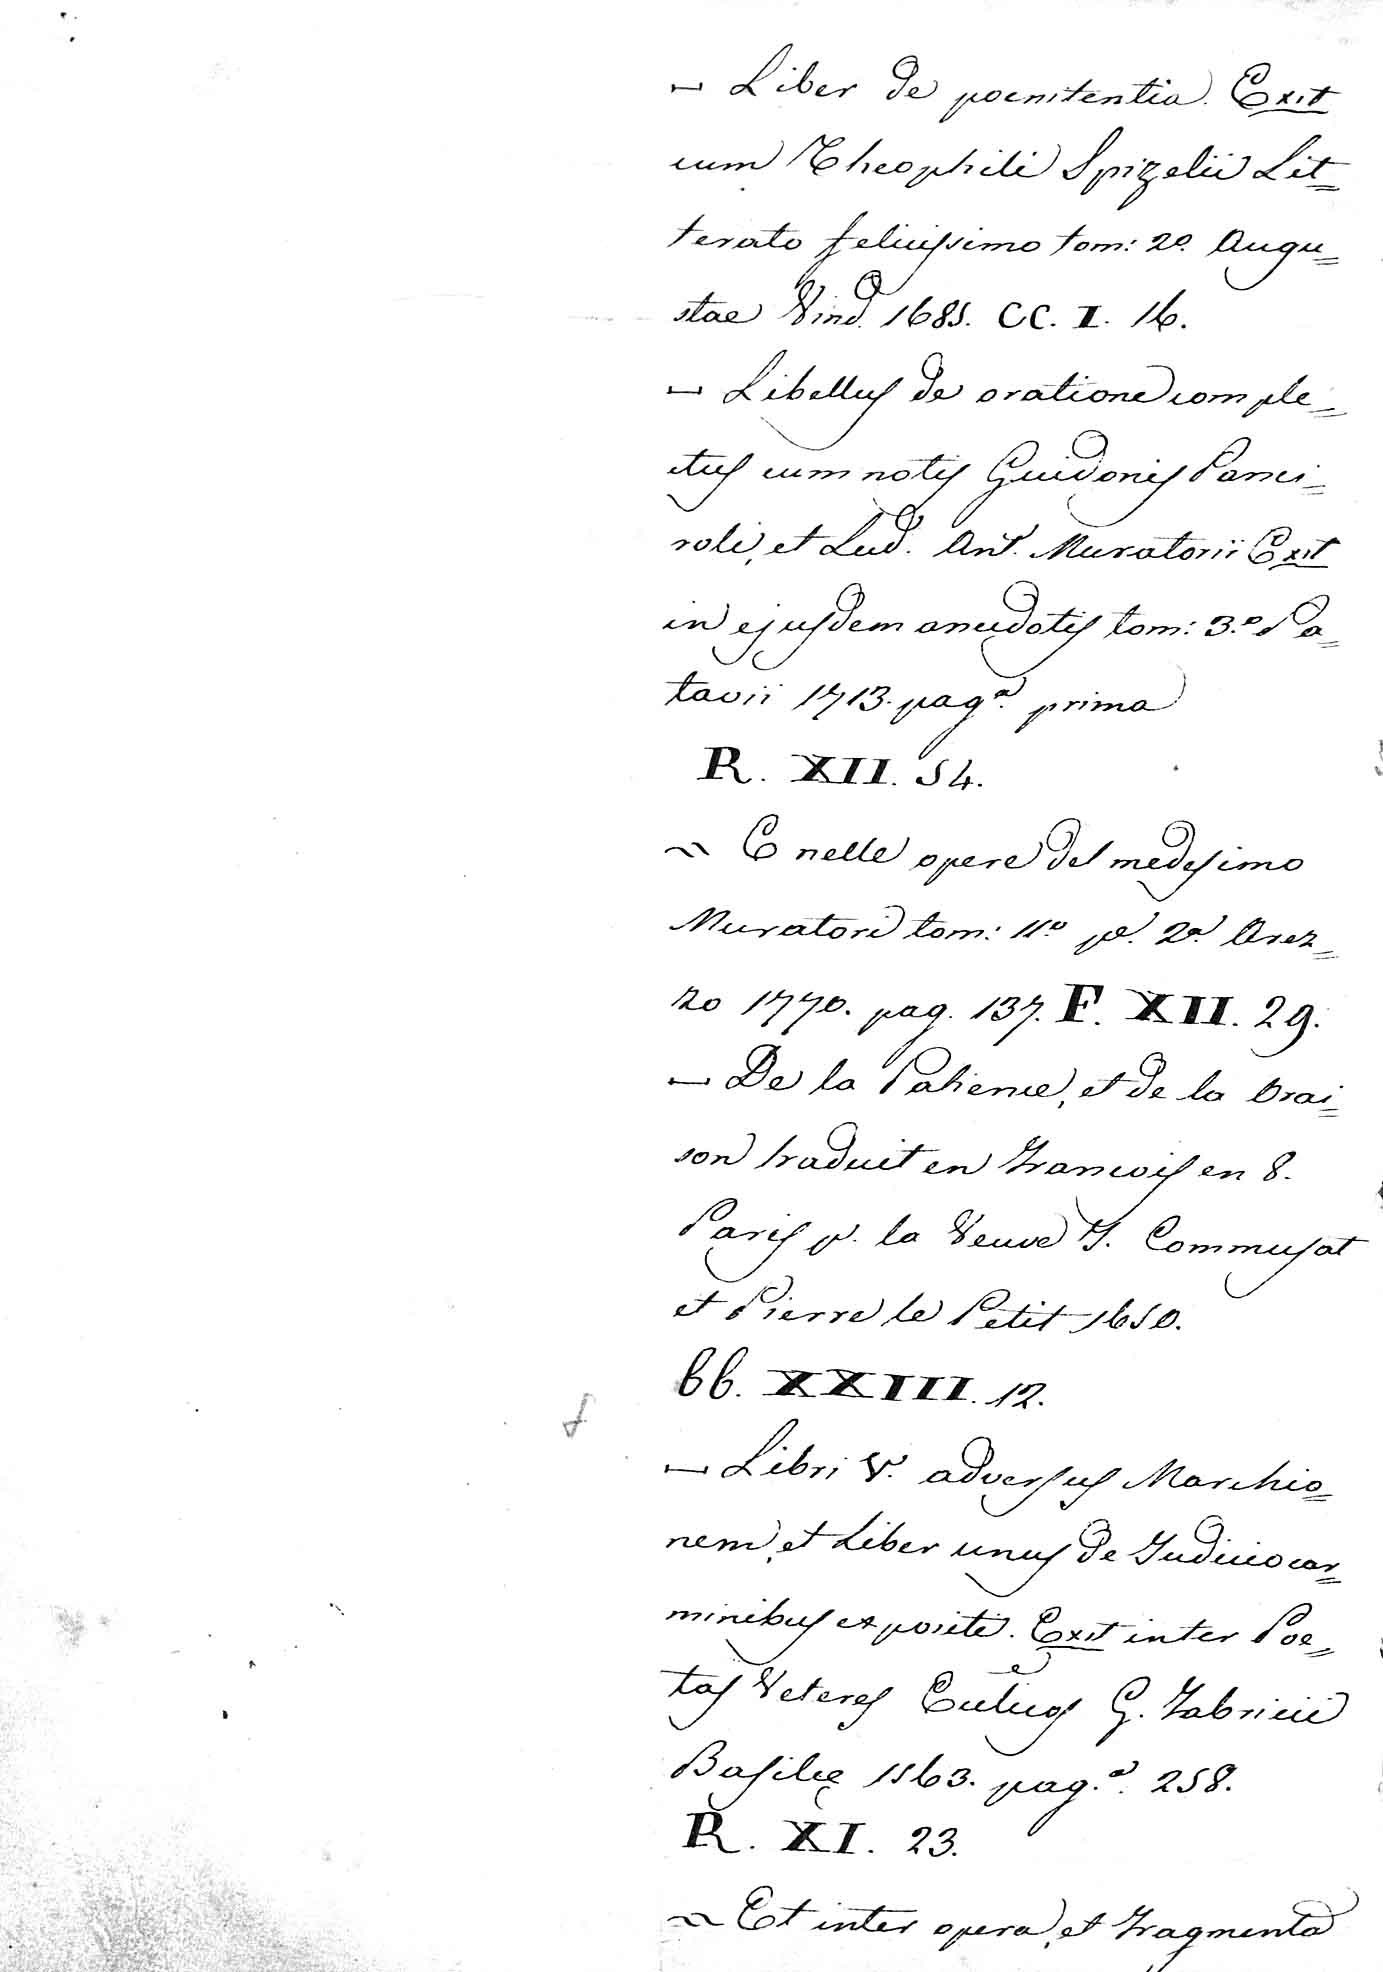 — Liber de poenitentia. Exit
cum Theophili Spizelii Lit=
terato felicissimo tom: 2º. Augu=
stae Vind. 1685. CC. I. 16.
— Libellus de oratione comple=
tus cum notis Guidonis Panci=
roli, et Lud. Ant. Muratorii Exit
in ejusdem anecdotis tom: 3.º Pa=
tavii 1713. pag.ª prima
R. XII. 54.
~ E nelle opere del medesimo
Muratori tom: 11.º pe. 2ª. Arez=
zo 1770. pag. 137. F. XII. 29.
— De la Patience, et de la Orai=
son traduit en Francois en 8.
Paris p. la Veuve J. Commusat
et Pierre le Petit 1650.
bb. XXIII. 12.
— Libri V. adversus Marchio=
nem, et Liber unus de Judicio car=
minibus expositi. Exit inter Poe=
tas Veteres Eccl.eos G. Fabricii
Basileę 1563. pag.ª. 258.
R. XI. 23.
~ Et inter opera, et Fragmenta